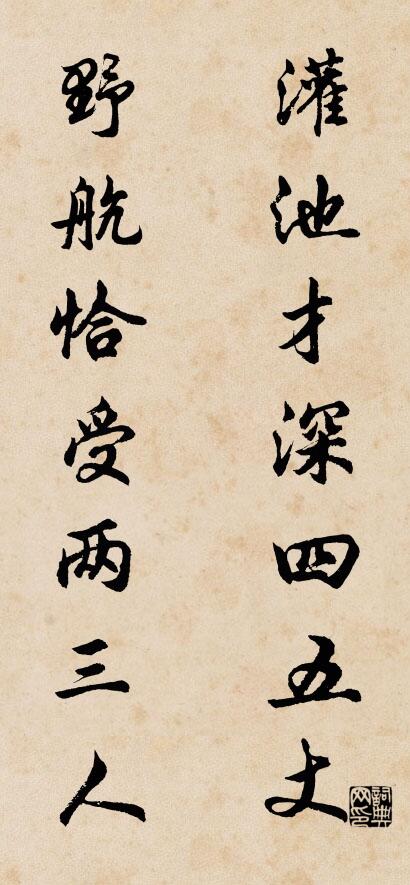 灌池才深四五丈
野航恰受两三人
詞典网印